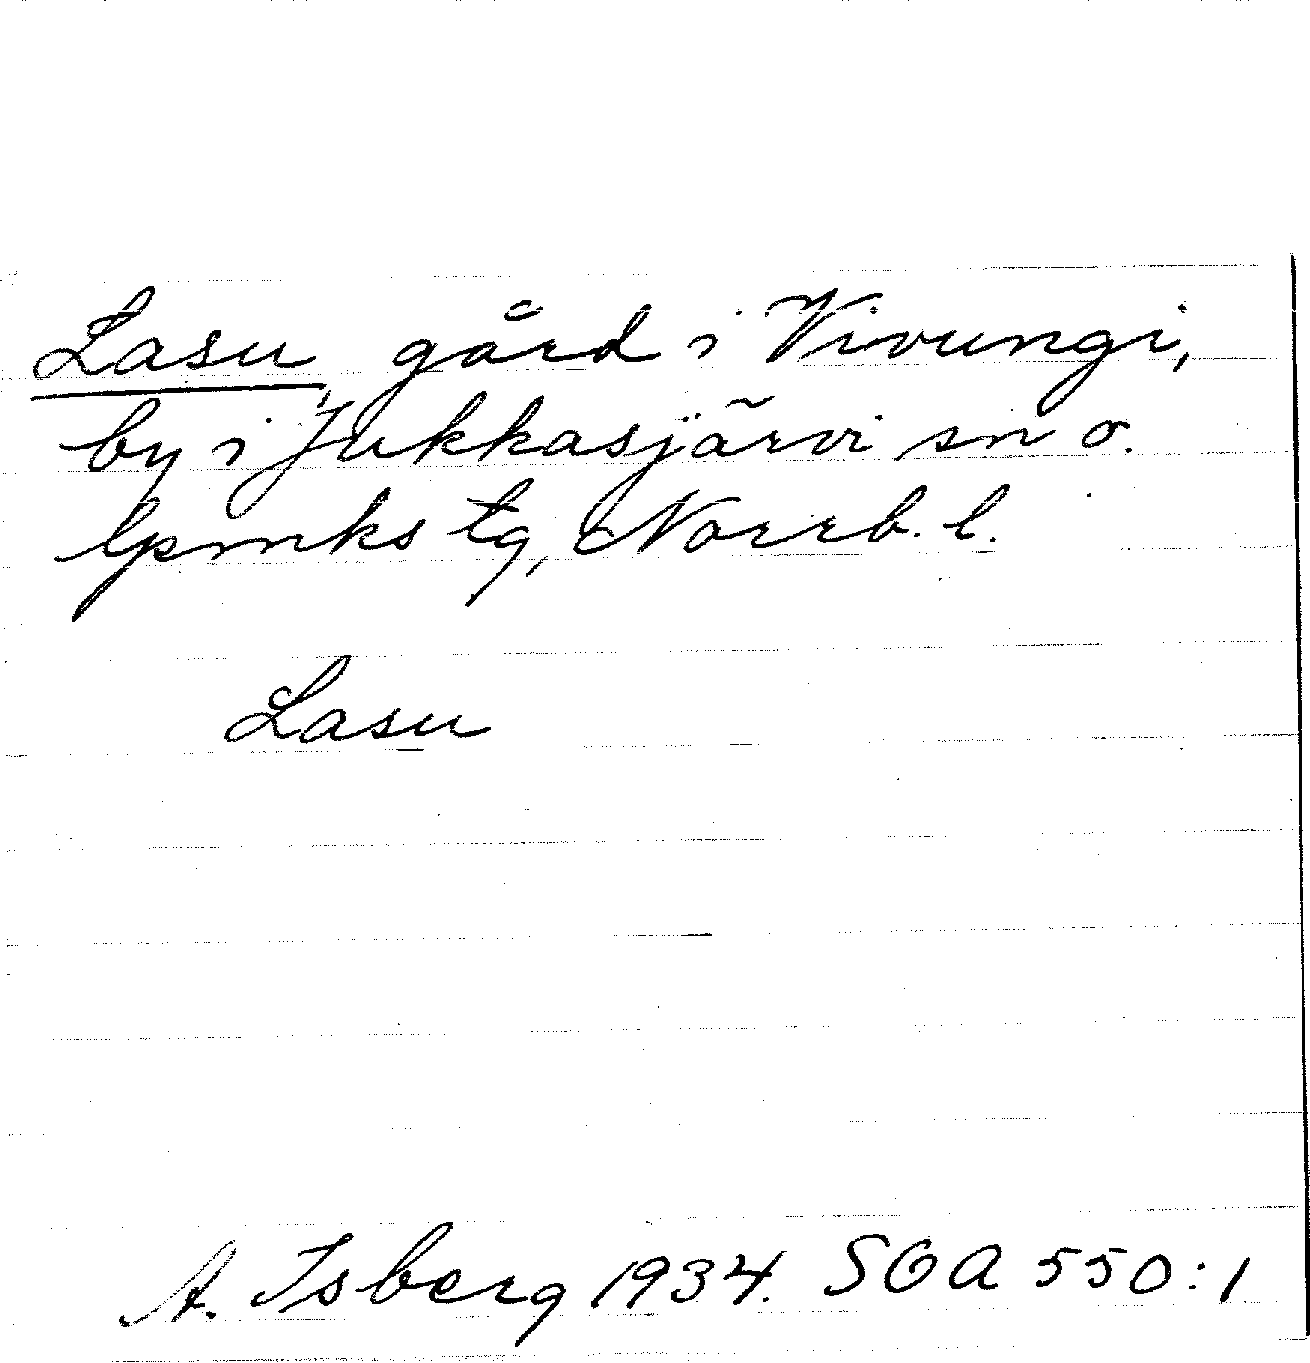 Lasu, gård i Vivungi,
by i Jukkasjärvi sn o.
lpmks tg, Norrb. l.
Lasu
A. Isberg 1934. SOA 550:1